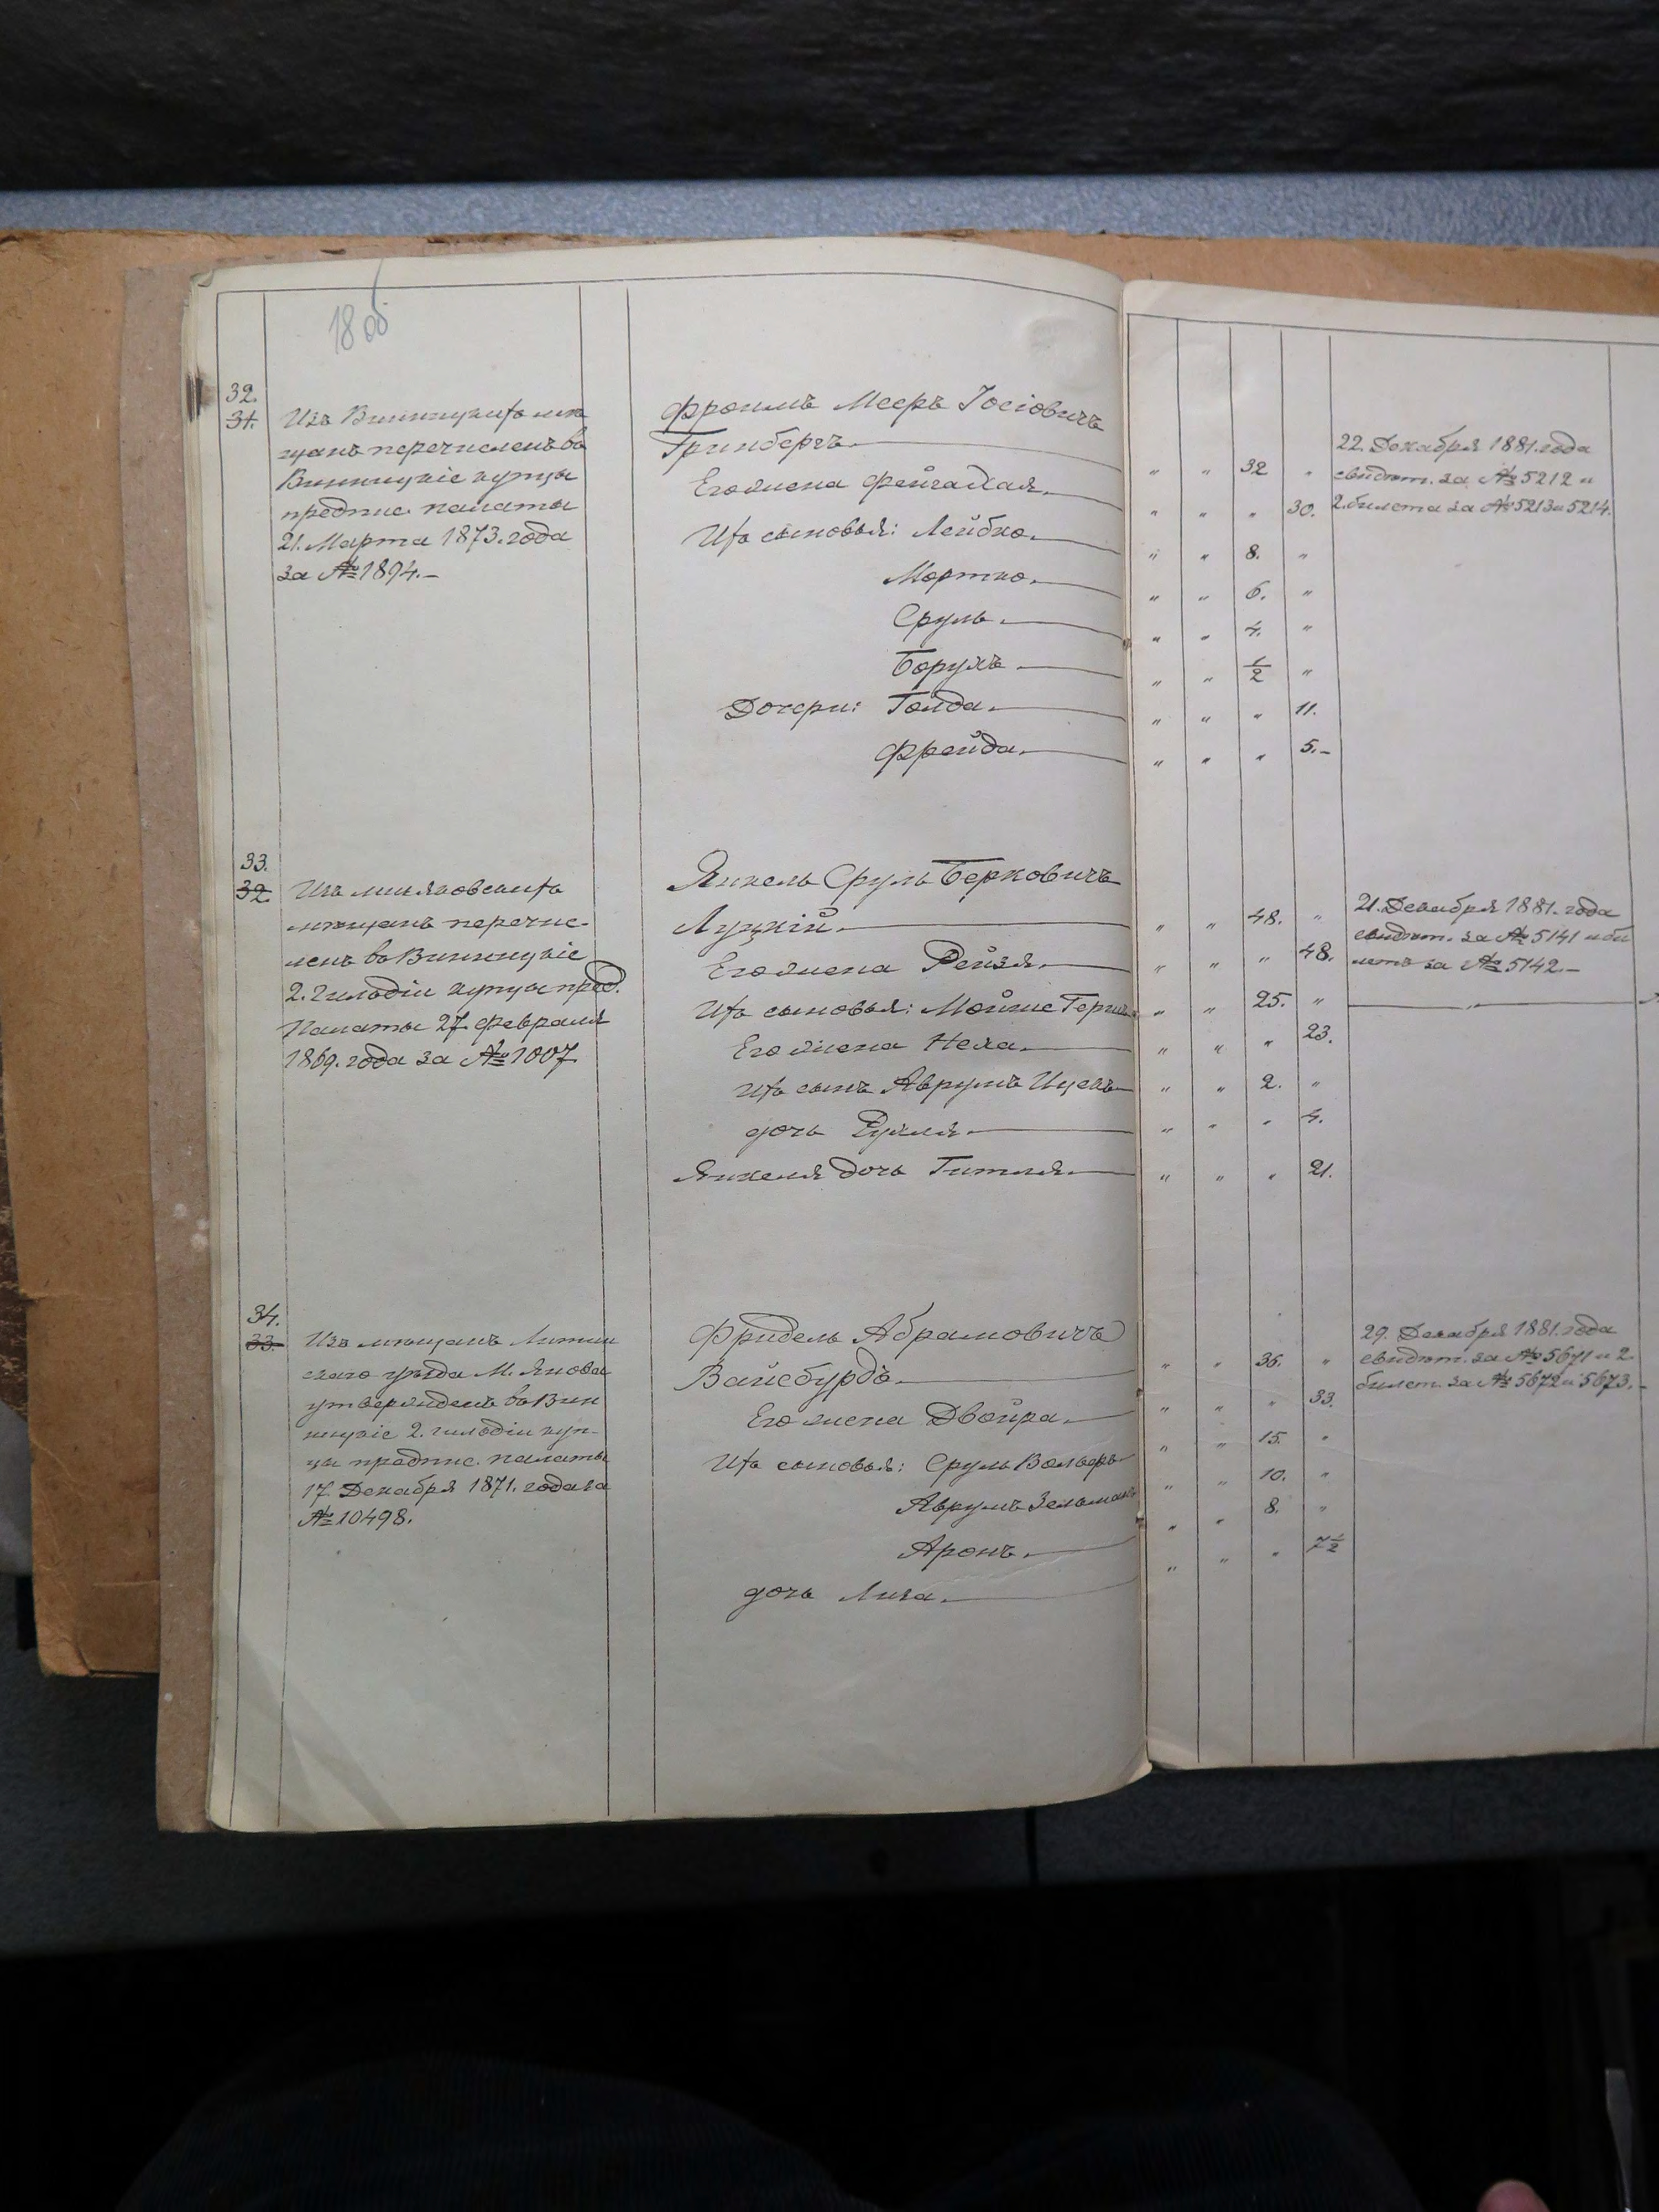 18 об
32.
31.
Изъ Винницкихъ мѣ
щанъ перечисленъ въ
Винницкіе купцы
предпис. палаты
21. Марта 1873. года
за № 1894.–
Фроимъ Мееръ Іосіовичъ
Гринбергъ. " " 32 "
Его жена Фейга " " " 30.
Ихъ сыновья: Лейбко. " " 8. "
Мортко. " " 6. "
Сруль. " " 4. "
Борухъ " " 1/2 "
Дочери: Голда. " " " 11.
Фрейда. " " " 5.–
22. Декабря 1881. года
свидѣт. за № 5212 и
2. билета за № 5213 и 5214.
33.
32.
Изъ
мѣщанъ перечис-
ленъ въ Винницкіе
2. гильдіи купцы пред.
Палаты 27. Февраля
1869. года за № 1007
Янкель Сруль Берковичъ
Луцкій. " " 48. "
Его жена Рейзя. " " " 48.
Ихъ сыновья: Мойше Гершъ " " 25. "
Его жена Неха. " " " 23.
Ихъ сынъ Аврумъ Ицекъ " " 2. "
дочь Рухля. " " " 4.
Янкеля дочь Гитля. " " " 21.
21. Декабря 1881. года
свидѣт. за № 5141 и би
летъ за № 5142 –
34.
33.
Изъ мѣщанъ Литин
скаго уѣзда М. Янова
утвержденъ въ Вин
ницкіе 2. гильдіи куп-
цы предпис. палаты
17. Декабря 1871. года за
№ 10498.
Фридель Абрамовичъ
Вайсбурдъ. " " 36. "
Его жена Двойра. " " " 33.
Ихъ сыновья: Сруль Вольфъ " " 15. "
Аврумъ Зельманъ " " 10. "
Аронъ. " " 8. "
дочь Лиза. " " " 7 1/2
29. Декабря 1881. года
свидѣт. за № 5671 и 2.
билет. за № 5672 и 5673.–